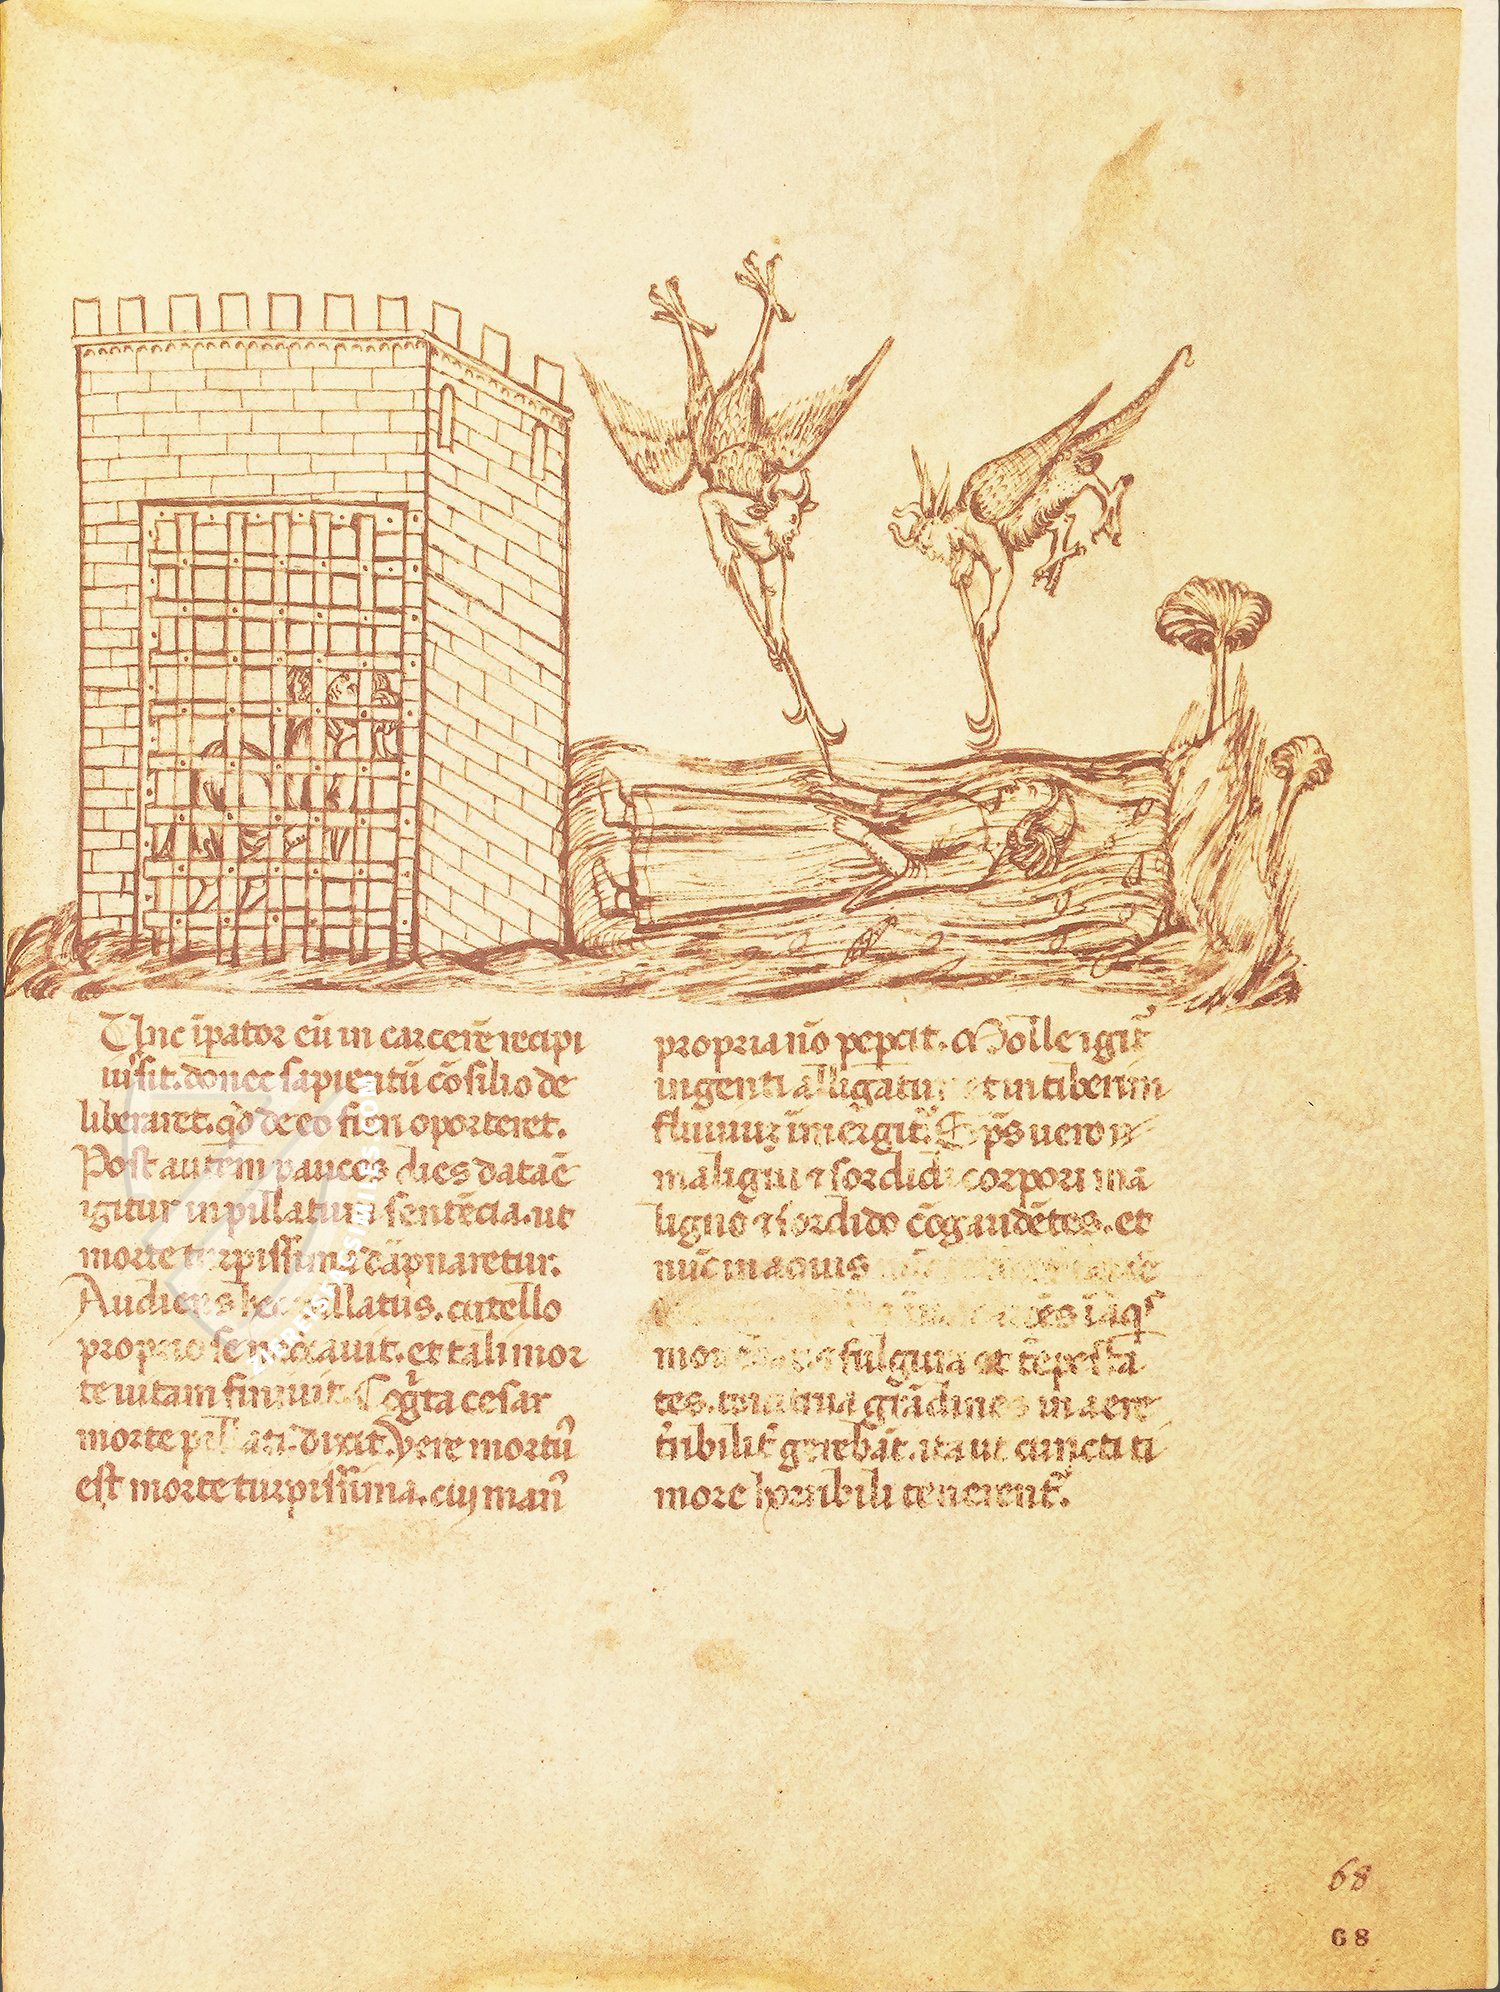 Tunc īpator eū in carcerē recipi
iussit. donec sapientū cōsilio de
liberaret. qd de eo fieri oporteret.
Post autem pauces dies data ē
igitur in pillatum sentēcia. ut
morte turpissima dāpnaretur.
Audiens hec pillatus. cutello
proprio se neccauit. et tali mor
te uitam finiuit. Cogͥta cesar
morte pillati. dixit. Vere mortuꝰ
est morte turpissima. cui manꝰ
propria nō pepcit. Molle igitͬ
ingenti alligatur et in tiberim
fluuiuz īmergitͬ. Spūs uero
maligni ⁊ sordidi corpori ma
ligno ⁊ sordido cōgaudētes. et
nūc in aquis
iāqs
fulgura et tēpesta
tes. tonitrua grādines in aere
tribilitͬ gerebāt. ita ut cuncti ti
more horribili tenerentͬ.
68
68